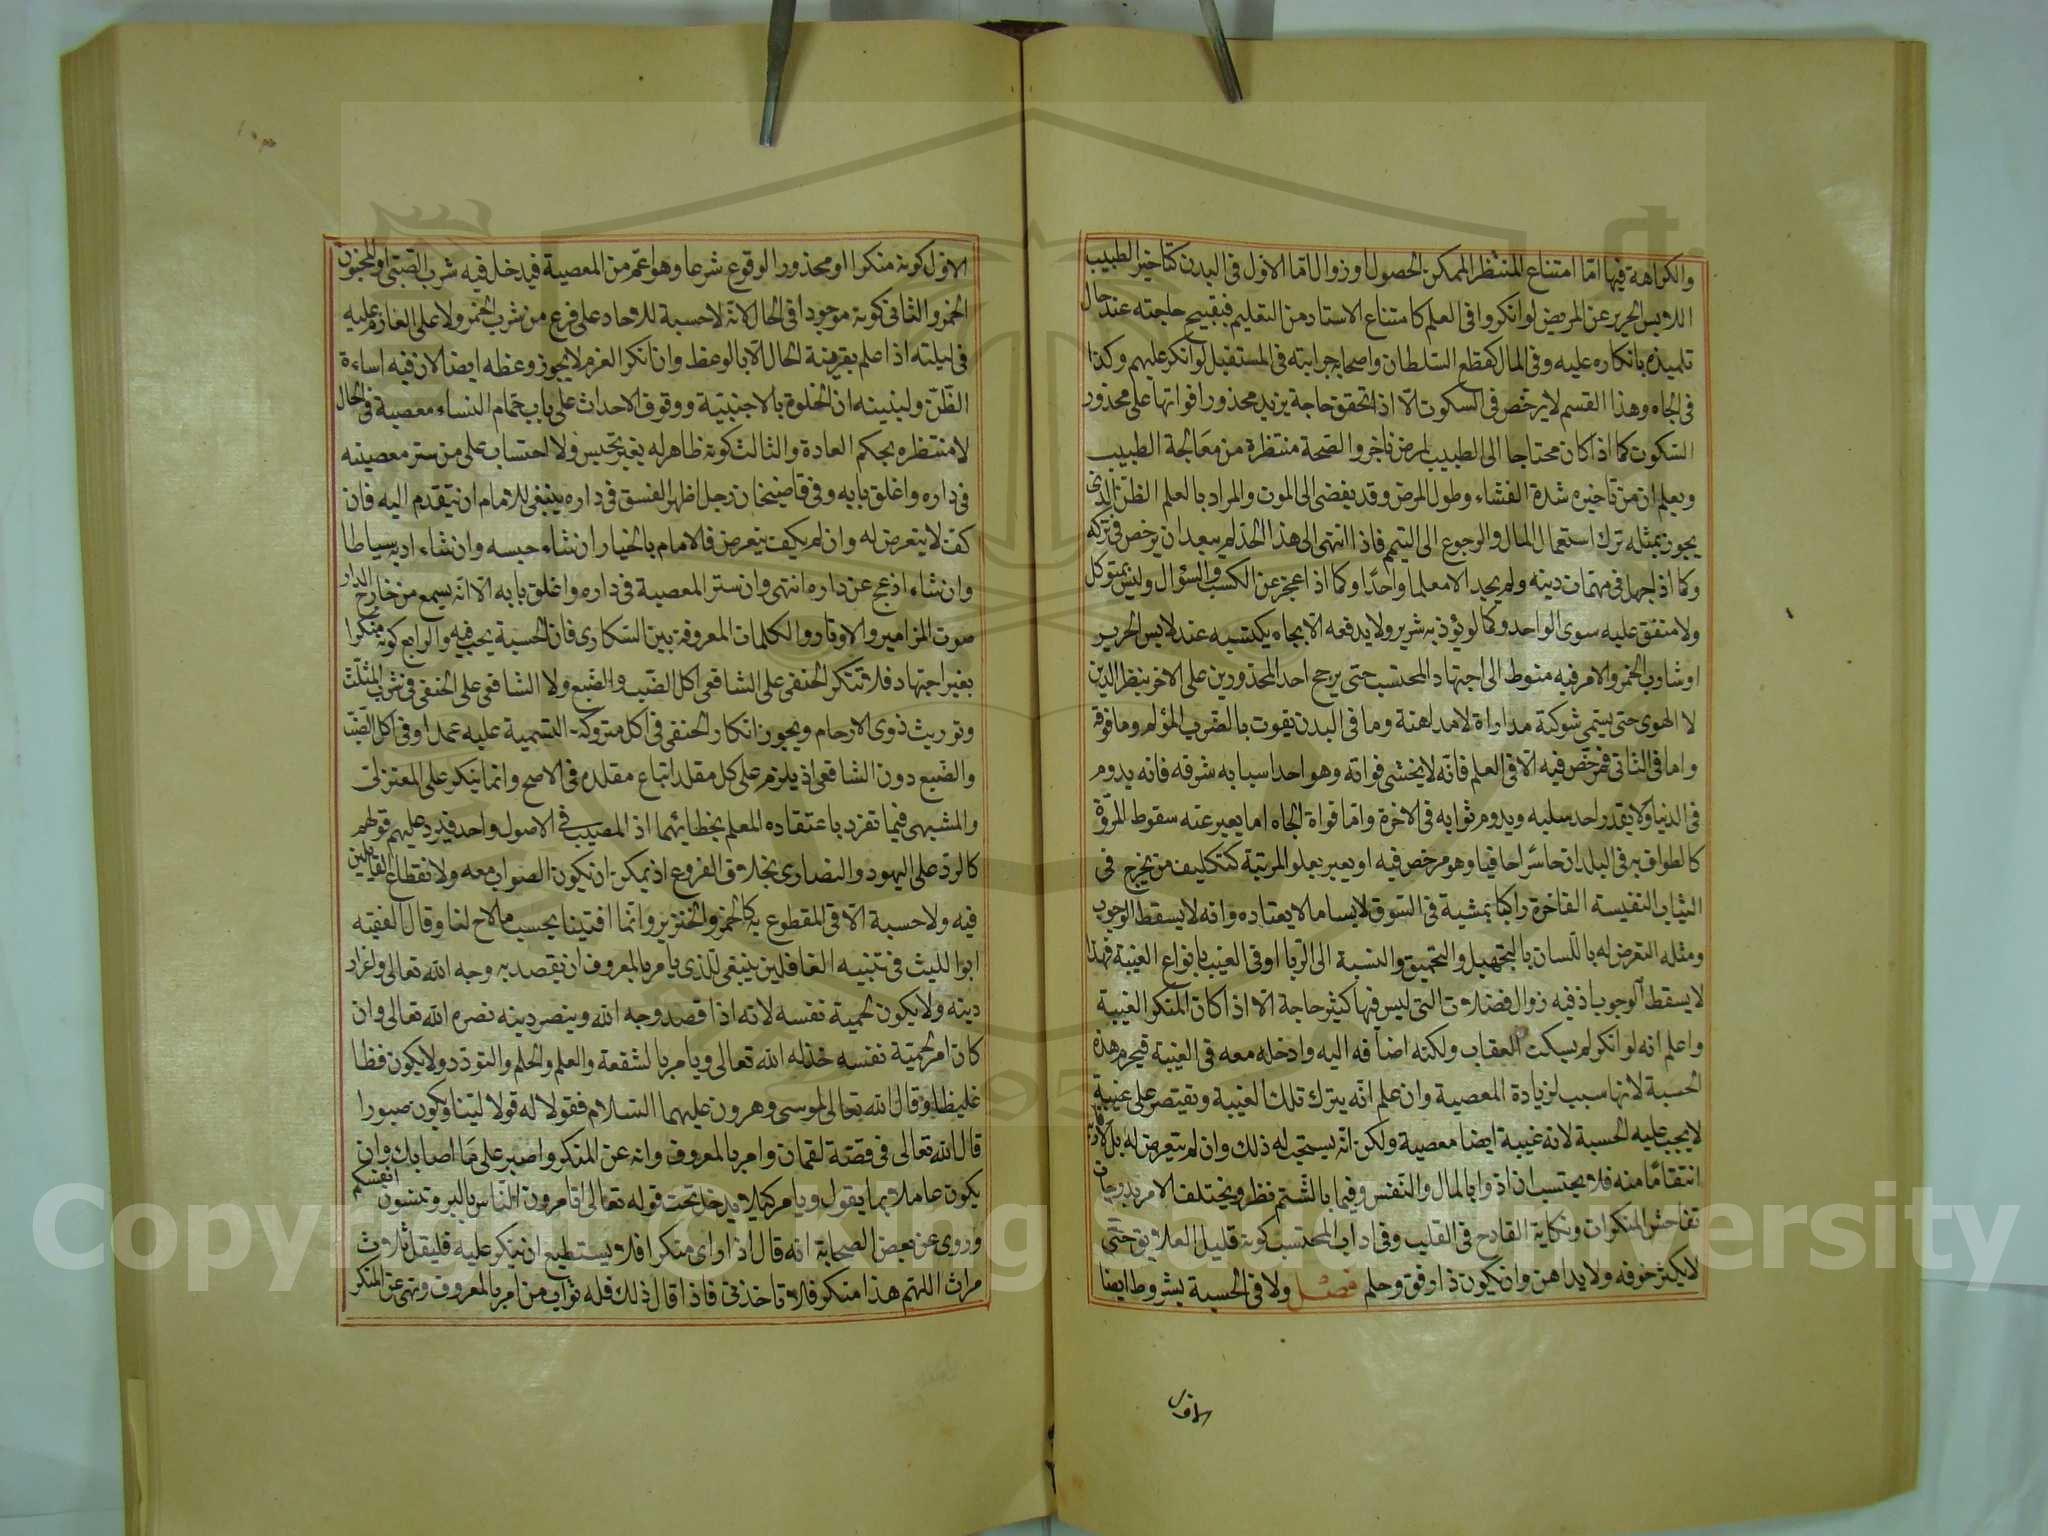 والكراهة فيها امّا امتناع المنتظر الممكن الحصول او زوال امّا الاول فى البدن كتاخير الطبيب
اللابس الحرير عن المريض لو انكر وا فى العلم كامتناع الاستاد من التعليم فبقبيح حاجته عند حال
تلميذه بانكاره عليه وفى المال كقطع السلطان واصحابه جرايته فى المستقبل لو انكر عليهم وكذا
فى الجاه وهذا القسم لا يرخص فى السكوت الّا اذا تحقق حاجة يزيد محذور افواتها على محذور
السكوت كما اذا كان محتاجا الى الطبيب لمرض ناجز والصحة منتظرة من معالجة الطبيب
ويعلم ان من تاخيره شدة الفشاء وطول المرض وقد يفضى الى الموت والمراد بالعلم الظنّ الذى
يجوز بمثله ترك استعمال المال والرجوع الى التيمم فاذا انتهى الى هذا الحدّ لم يبعد ان يرخص فى تركه
وكما اذ جهل فى مهمّات دينه ولم يجد الا معلما واحدًا وكما اذا عجز عن الكسب والسؤال وليس بمتوكل
ولا منفق عليه سوى الواحد وكما لو يؤذ به شرير ولا يدفعه الا بجاه يكتسبه عند لابس الحرير
او شارب الخمر والامر فيه منوط الى اجتهاد المحتسب حتى يرجح احد المحذورين على الاخر بنظر الدين
لا الهوى حتى يسمى شوكته مداراة لا مداهنة وما فى البدن يفوت بالضرب المؤلم وما فوقه
واما فى الثانى فمرخّص فيه الا فى العلم فانّه لا يخشى فواته وهو احد اسبابه شرفه فانه يدوم
فى الدنيا ولا يقدر احد سلبه ويدوم ثوابه فى الاخرة وامّا فواة الجاه اما يعبر عنه سقوط المروّة
كالطواف به فى البلدان حاسرا حافيا وهو مرخص فيه او يعبر بعلو المرتبة كتكليف من يخرج فى
الثياب النفيسة الفاخرة راكبا بمشية فى السوق لابساما لا يعتاده وانه لا يسقط الوجوب
ومثله التعرض له باللسان بالتجهيل والتحميق والنسبة الى الريا او فى الغيب بانواع الغيبة فهذا
لا يسقط الوجوب اذ فيه زوال فضلات التى ليس فيها كثير حاجة الّا اذا كان المنكر الغيبة
واعلم انه لو انكر لم يسكت العقاب ولكنه اضافه اليه وادخله معه فى الغيبة فيحرم هذه
الحسبة لانها سبب لزيادة المعصية وان علم انّه يترك تلك الغيبة ويقتصر على غيبة
لا يجب عليه الحسبة لانه غيبة ايضا معصية ولكن انّه يستحب له ذلك وان لم يتعرض له بل لاقاربه
انتقامًا منه فلا يحتسب ان اذوا بالمال والنفس وفيما بالشتم نظر ويختلف الامر بدرجات
تفاحش المنكرات ونكاية القادح فى القلب وفى اداب المحتسب كونه قليل العلايق حتى
لا يكثر خوفه ولا يداهن وان يكون ذا رفق وحلم فصل ولا فى الحسبة بشروط ايضا
الاول
الاول كونه منكرا او محذور الوقوع شرعا وهو اعمّ من المعصية فيدخل فيه شرب الصّبىّ او المجنون
الخمر والثانى كونه موجودا فى الحال لانّه لا حسبة للاوحاد على فرغ من شرب الخمر ولا على العازم عليه
فى ليلته اذا علم بقرينة الحال الّا بالوعظ وان انكر العزم لا يجوز وعظه ايضا لان فيه اساءة
الظّن ولبنينه ان الخلوة بالاجنبيّة ووقوف الاحداث على باب حمّام النساء معصية فى الحال
لا منتظره بحكم العادة والثالث كونه ظاهر له بغير تجسس ولا احتساب على من ستر معصيته
فى داره واغلق بابه وفى قاضيخان رجل اظهر الفسق فى داره ينبغى للامام ان يتقدم اليه فان
كفّ لا يتعرض له وان لم يكفّ يتعرض فالامام بالخيار ان شاء حبسه وان شاء ادبه سياطا
وان شاء ازعج عن داره انتهى وان ستر المعصية فى داره واغلق بابه الّا انّه يسمع من خارج الدار
صوت المزامير والاوتار والكلمات المعروفة بين السّكارى فان الحسبة يجب فيه والرابع كونه منكرا
بغير اجتهاد فلا تنكر الحنفى على الشافعى اكل الضّب والضّبع ولا الشافعى على الحنفى فى شرب المثلّث
وتوريث ذوى الارحام ويجوز انكار الحنفى فى اكل متروكة التسمية عليه عمدا وفى اكل الضّبّ
والضّبع دون الشافعى اذ يلزم على كل مقلد اتباع مقلده فى الاصح وانما ينكر على المعتزلى
والمشبهى فيما تفرد باعتقاده المعلم بخطائهما اذ المصيب فى الاصول واحد فيرد عليهم قولهم
كالرد على اليهود والنصارى بخلاف الفروع اذ يمكن ان يكون الصواب معه ولانقطاع القايلين
فيه ولا حسبة الّا فى المقطوع به كالخمر والخنزير وانّما افتينا بحسب ما لاح لنا وقال الفقيه
ابو الليث فى تنبيه الغافلين ينبغى للّذى يامر بالمعروف ان يقصد به وجه الله تعالى واعزاز
دينه ولا يكون لحمية نفسه لانه اذا قصد وجه الله وينصر دينه نصره الله تعالى وان
كان امر لحميّة نفسه خذله الله تعالى ويامر بالشفعة والعلم والحلم والتودد ولا يكون فظا
غليظا وقال الله تعالى لموسى وهرون عليهما السّلام فقولا له قولا ليّنا ويكون صبورا
قال الله تعالى فى قصّة لقمان وامر بالمعروف وانه عن المنكر واصبر على ما اصابك وان
يكون عاملا بما يقول ويامر كيلا يدخل تحت قوله تعالى اتامرون النّاس بالبر وتنسون انفسكم
وروى عن بعض الصحابة انه قال اذا راى منكرا فلا يستطيع ان ينكر عليه فليقل ثلاث
مراث اللهم هذا منكر فلا تاخذنى فاذا قال ذلك فله ثواب من امر بالمعروف ونهى عن المنكر
Copyright © King Saud University